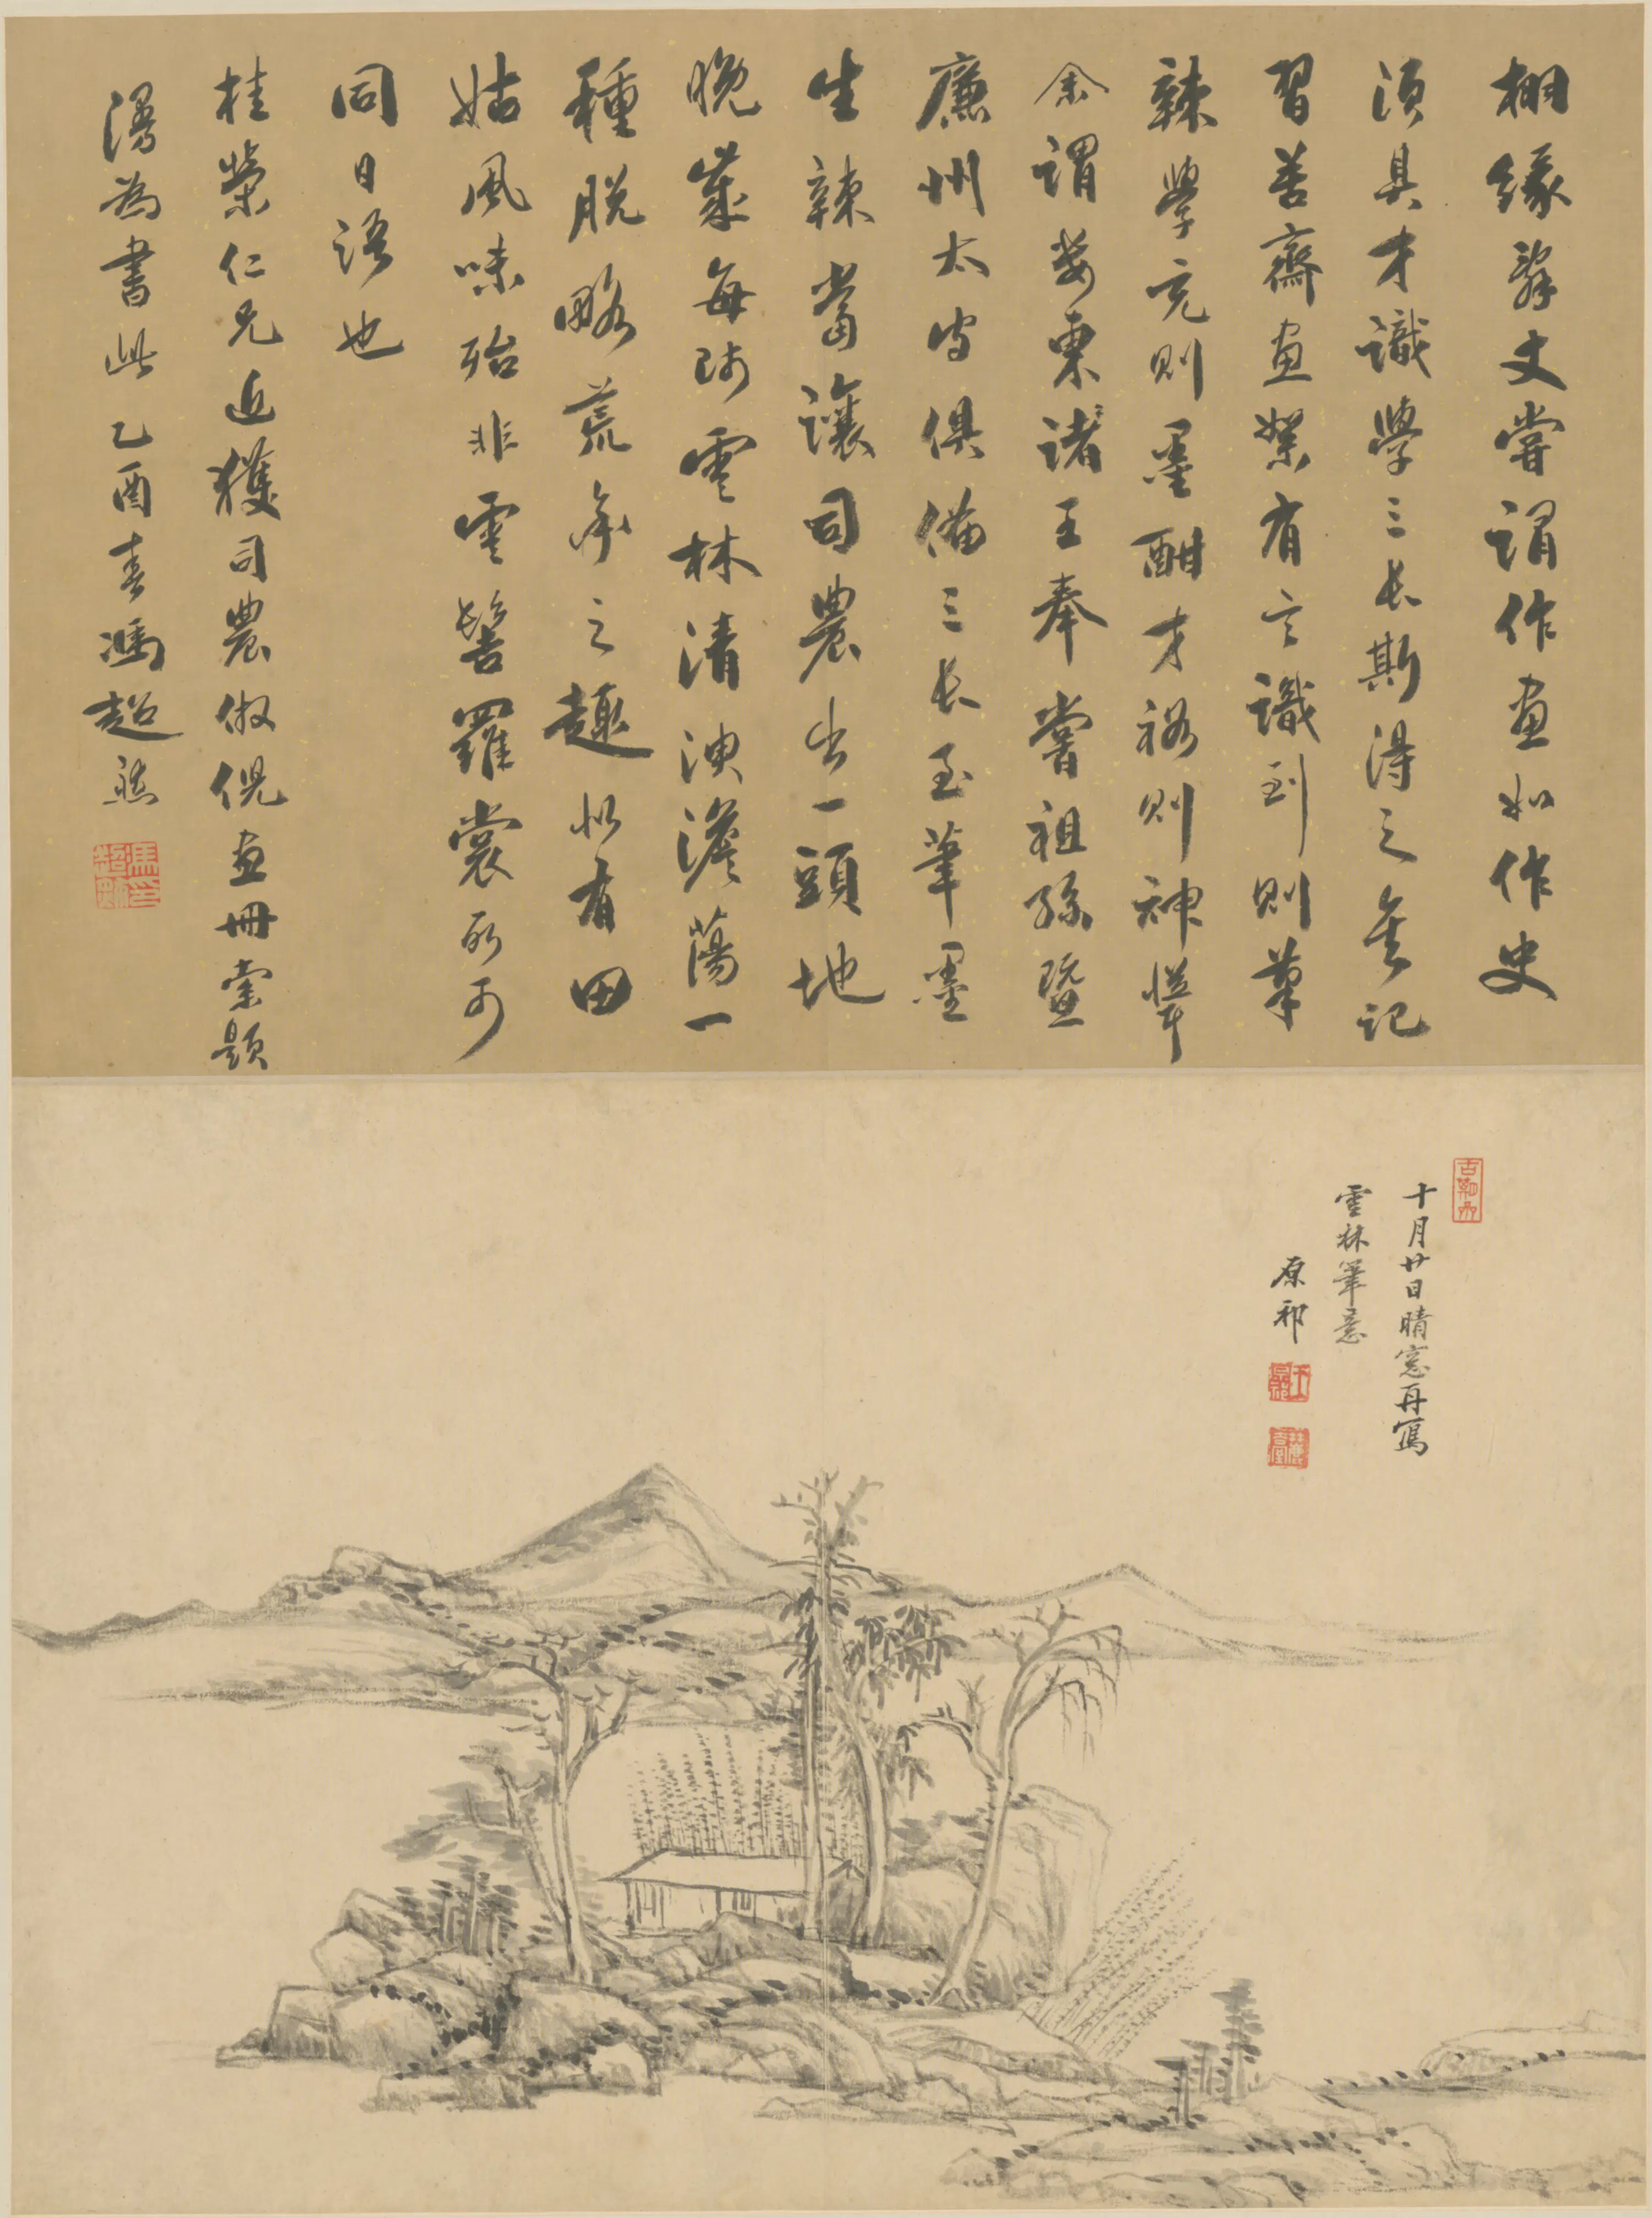 棚緣辭丈嘗謂作畫如作史
須具才識學三長斯得之矣記
習苦齋畫絮有言識到則筆
辣學充則墨酣才裕則神聳
余謂婁東諸王奉嘗祖孫暨
廉州太守俱備三長至筆墨
生辣當讓司農出一頭地
晚歲每師雲林清澳澹蕩一
種脫略荒率之趣如有田
姑風味殆非雲髻羅裳所可
同日語也
桂榮仁兄近獲司農倣倪畫冊索題
漫為書此乙酉春馮超然
十月廿日晴窓再寫
雲林筆意
原祁